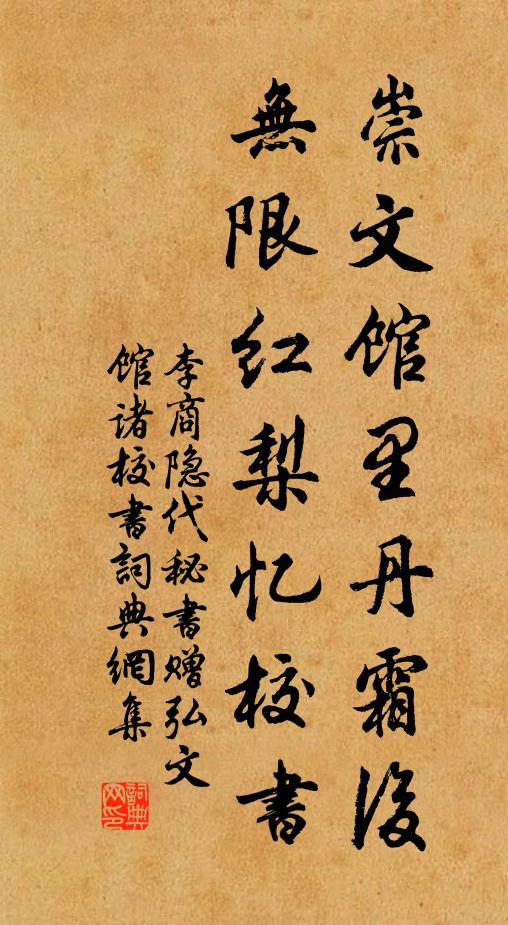 崇文馆里丹霜後
無限红梨忆校書
李商隐代秘書赠弘文
馆诸校書詞典網集
詞典网印